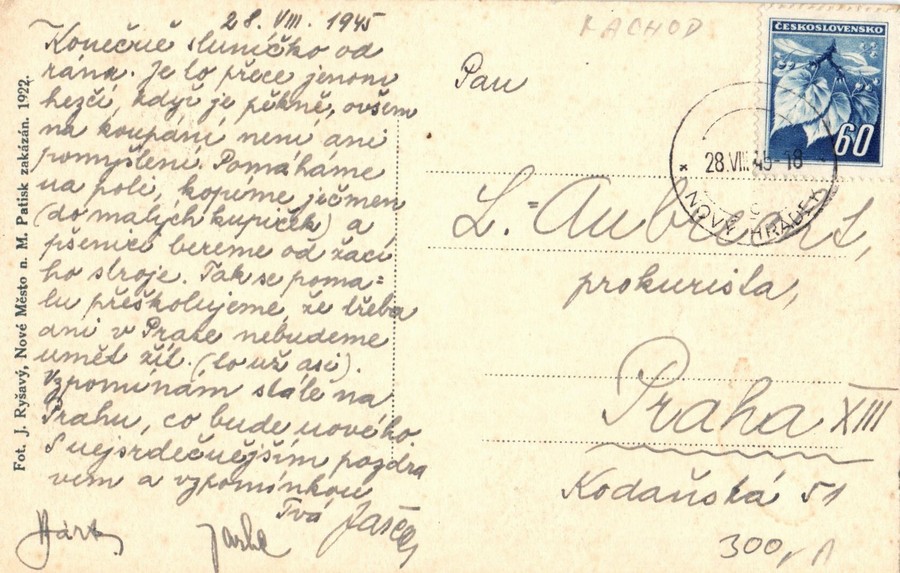 28. VIII. 1945
Konečně sluníčko od
rána. Je to přece jenom
hezčí, když je pěkně, ovšem
na koupání není ani
pomyšlení. Pomáháme
na poli, kopeme ječmen
(do malých kupiček) a
pšenici bereme od žací
ho stroje. Tak se poma=
lu přeškolujeme, že třeba
ani v Praze nebudeme
umět žít. (to už asi).
Vzpomínám stále na
Prahu, co bude nového
S nejsrdečnějším pozdra
vem a vzpomínkou
Tvá
Fot. J. Ryšavý, Nové Město n. M. Patisk zakázán. 1922.
NACHOD
ČESKOSLOVENSKO
60
28.VIII.45-18
NOVÝ HRÁDEK
Pan
prokurista,
Praha XIII
Kodaňská 51
300,-